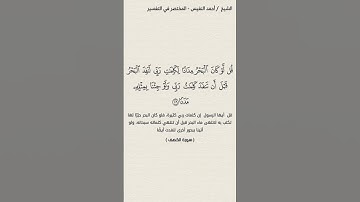 الشيخ / أحمد النفيس - المختصر في التفسير
قُل لَّوْ كَانَ ٱلْبَحْرُ مِدَادًا لِّكَلِمَٰتِ رَبِّي لَنَفِدَ ٱلْبَحْرُ
قَبْلَ أَن تَنفَدَ كَلِمَٰتُ رَبِّي وَلَوْ جِئْنَا بِمِثْلِهِۦ
مَدَدًا ١٠٩
قل -أيها الرسول-: إن كلمات ربي كثيرة، فلو كان البحر حبرًا لها
تكتب به لانتهى ماء البحر قبل أن تنتهي كلماته سبحانه، ولو
أتينا ببحور أخرى لنفدت أيضًا
( سورة الكهف )